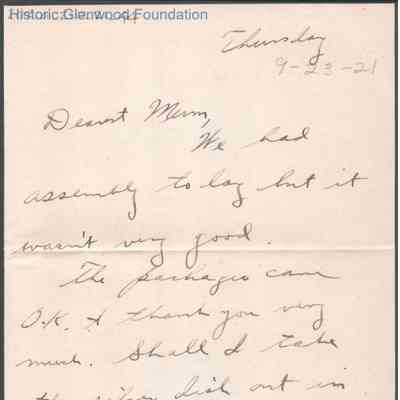 Historic Glenwood Foundation
Thursday
9-23-21
Dearest Mum,
We had
assembly to day but it
wasn't very good.
The packages came
O.K. & thank you very
much. Shall I take
the silver dish out in